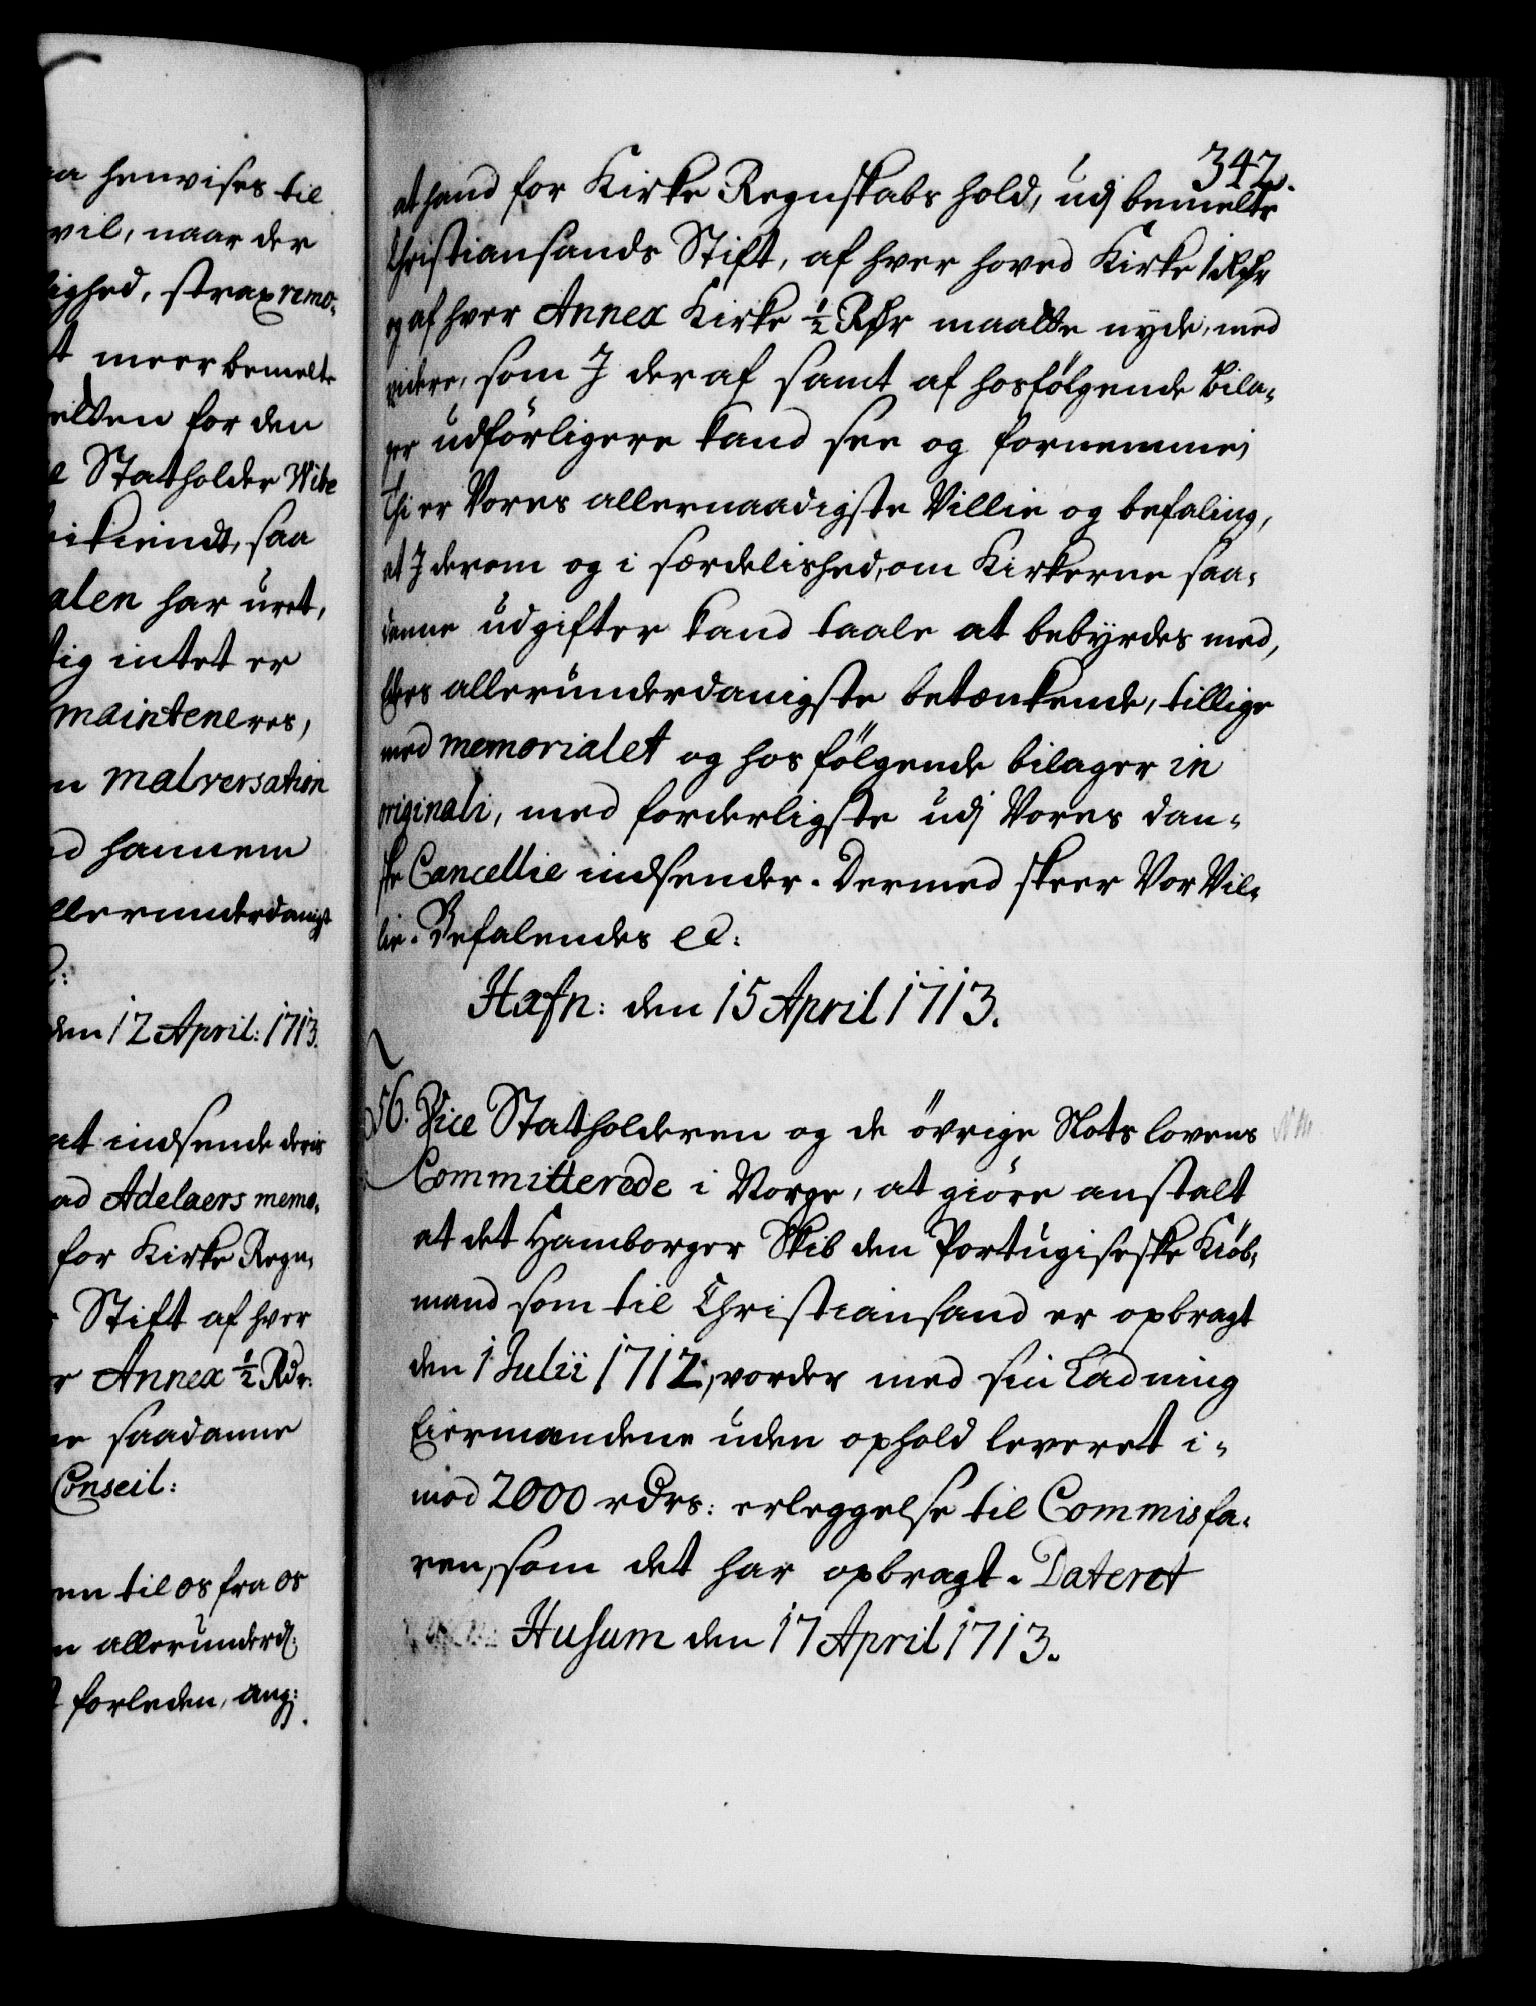 aa henvises til
vil, naar der
lighed, strax remo-
t meerbemelte
elden for den
e Statholder Wibe
ikiendt, saa
alen har uret,
tig intet er
mainteneres,
n malversation
d hannem
llerunderdanigst
den 12 April: 1713.
at indsende deris
ad Adelaers memo-
for Kirke Regn-
Stift af hver
r Annex ½ Rdr:
ne saadanne
Conseil:
en til os fra os
n allerunderd:
forleden, ang:
342.
at hand for Kirke Regnskabs hold, udj bemelte
Christiansands Stift, af hver hoved Kirke 1 Rdr
og af hver Annex Kirke ½ Rdr maatte nyde, med
videre, som I deraf samt af hosfölgende bila-
ger udförligere kand see og fornemme;
Thi er Vores allernaadigste Villie og befaling,
at I derom og i særdelished, om Kirkerne saa-
danne udgifter kand taale at bebyrdes med,
Eders allerunderdanigste betænkende, tillige
med memorialet og hos fölgende bilager in
originali, med forderligste udj Vores dan-
ske Cancellie indsender. Dermed skeer Vor Vil-
lie. Befalendes ec:
Hafn: den 15 April 1713.
56. Vice Statholderen og de övrige Slots lovens
Committerede i Norge, at giöre anstalt
at det Hamborger Skib den Portugiseske Kiöb-
mand som til Christiansand er opbragt
den 1 Julii 1712, vorder med sin Ladning
Eiermandene uden ophold leveret i-
mod 2000 rdrs: erleggelse til Commisfa-
ren, som det har opbragt. Dateret
Husum den 17 April 1713.